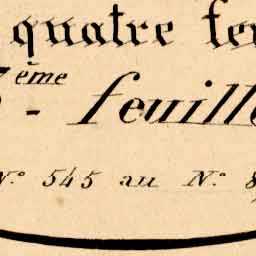 quatre
ème - feuille
N° 545 au N° 8